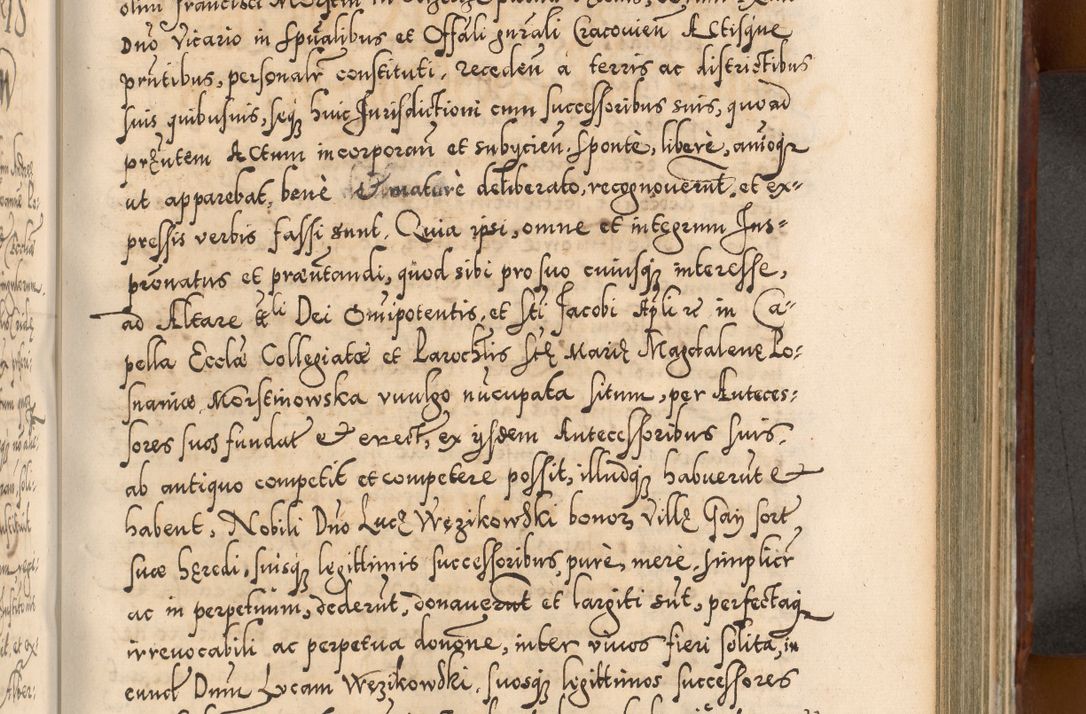 olim Francisci
Dno Vicario in Spualibus et Offali gnrali Cracovien Actisque
prntibus, personalr constituti, receden à terris ac districtibus
suis quibusvis, seq huic Jurisdictioni cum successoribus suis, quoad
pręntem Actum incorporan et subycien, sponte, liberè, animoq
ut apparebat, benè et maturè deliberato, recognoverunt, et ex-
pressis verbis fassi sunt. Quia ipsi, omne et integrum Jus-
pronatus et præntandi, quod sibi pro suo cuiusq interesse,
ad Altare tli Dei Omipotentis, et Sti Jacobi Apli re in Ca-
pella Ecclæ Collegiatæ et Parochlis Stę Marię Magdalenę Po-
snaniæ Morstinowska vuulgo nucupata situm, per Anteces-
sores suos fundat et erect, ex ijsdem Antecessoribus suis,
ab antiquo competit et competere possit, illudq habuerut et
habent, Nobili Dno Lucę Węzikowski bonor Villę Gay sort
suæ hęredi, suisq legittimis successoribus, purè, merè, simplicr
ac in perpetuum, dederut, donaverut et largiti sut, perfectaq
irrevocabili ac perpetua donone, inter vivos fieri solita, in
eund Dnum Lucam Węzikowski, suosq legittimos successores